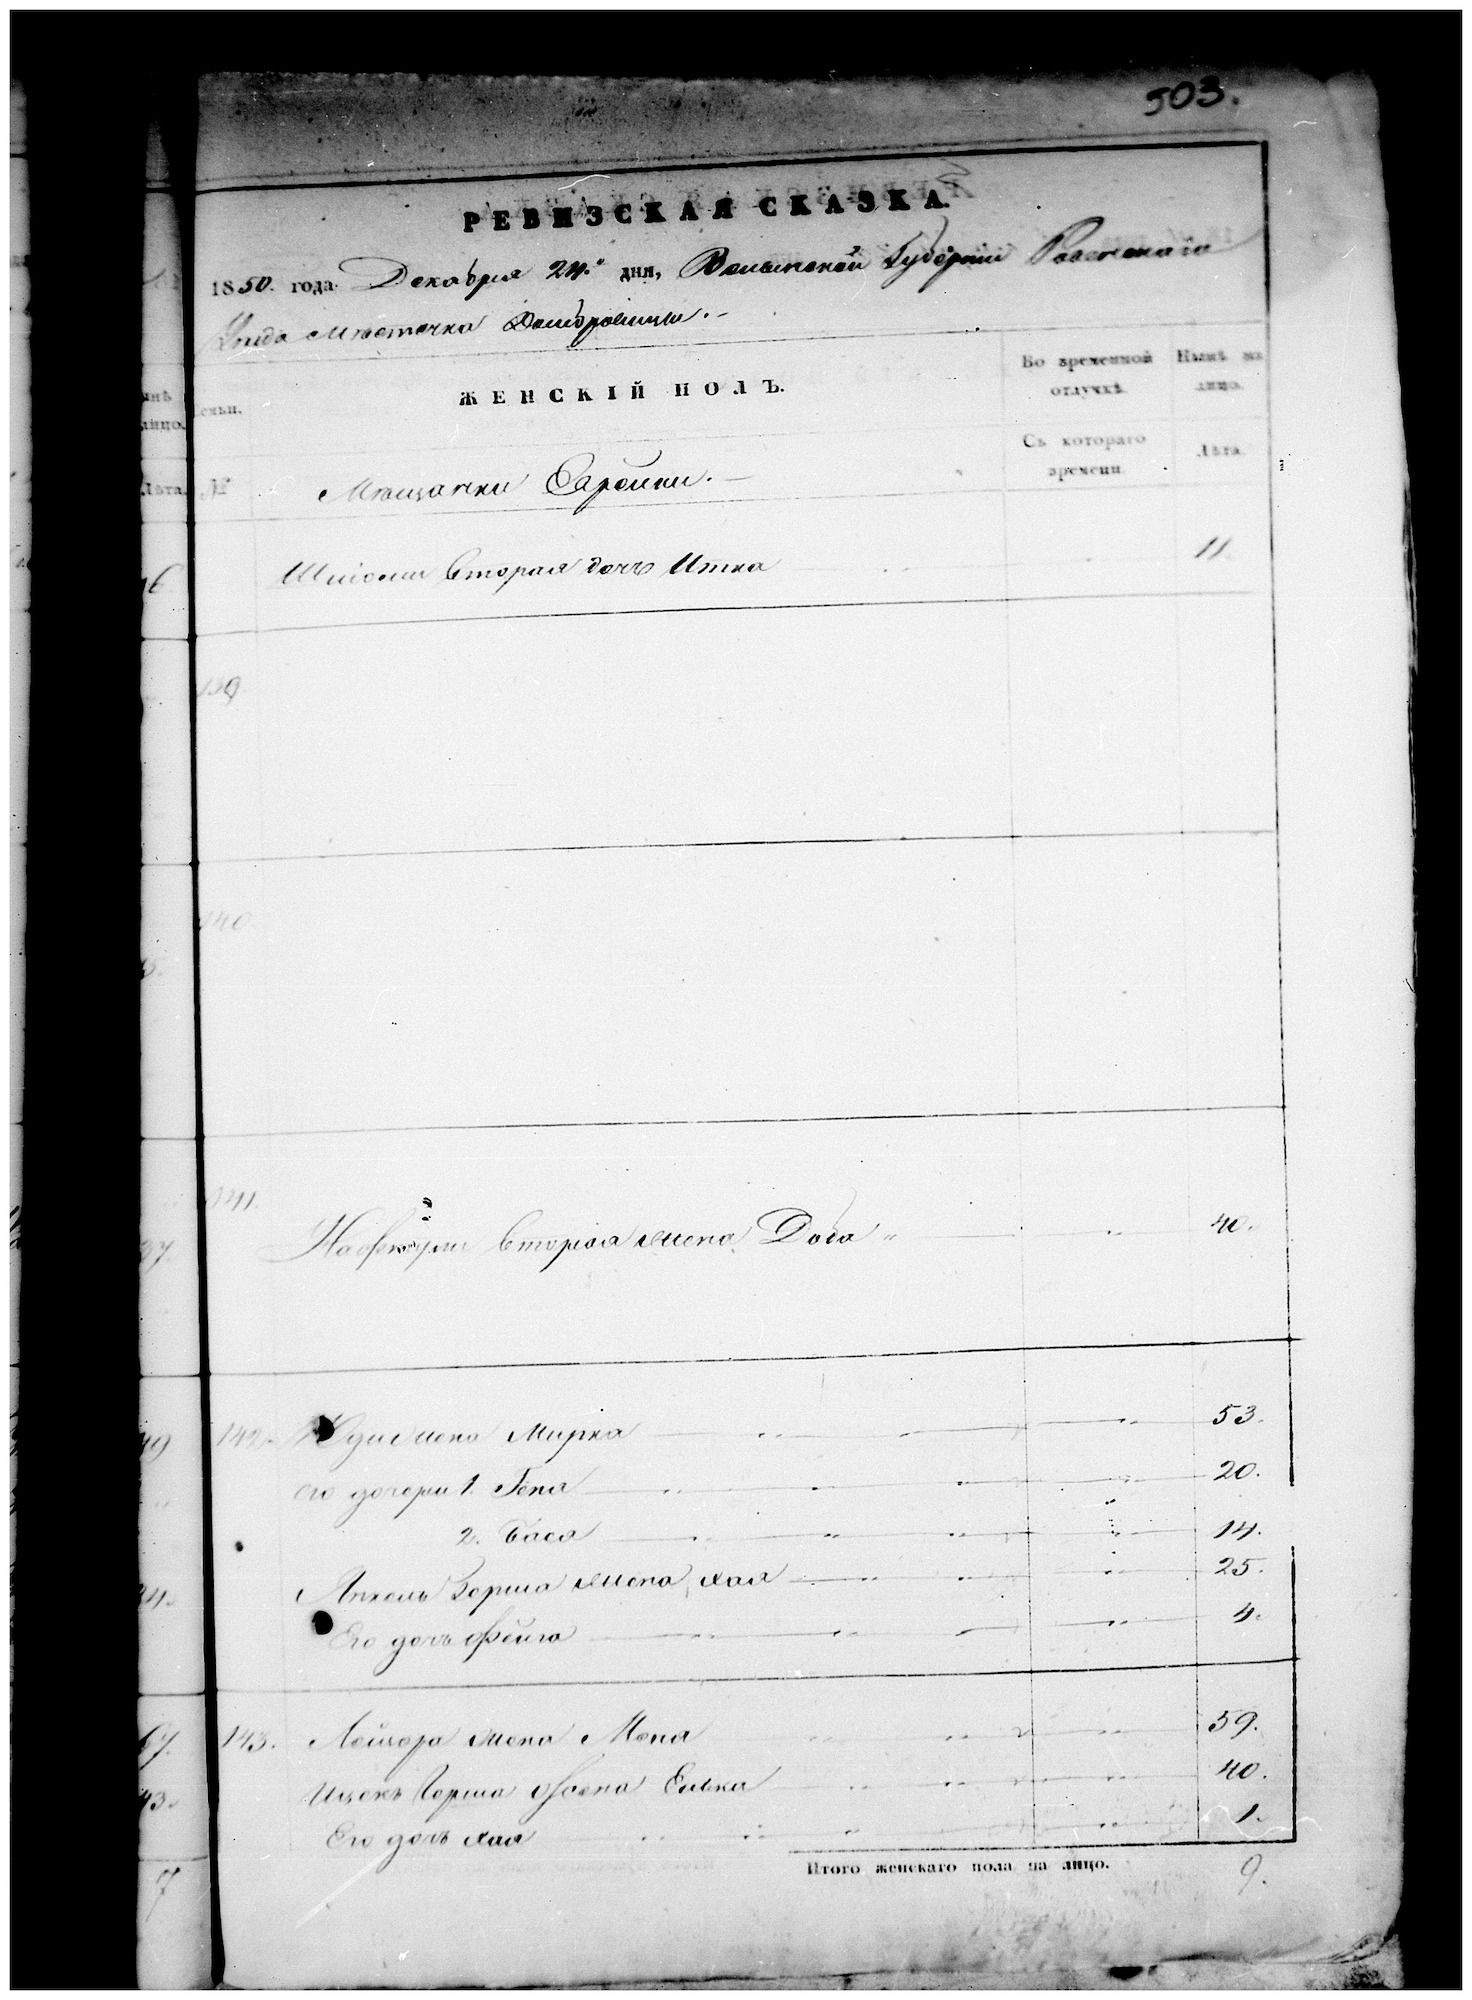 503.
РЕВИЗСКАЯ СКАЗКА.
1850. года Декабря 24." дня, Волынской Губерніи Ровенскаго
Уезда Местечка Домбровицы.
ЖЕНСКІЙ ПОЛЪ.
Во временной отлучкѣ.
Нынѣ на лицо.
семьи.
нынѣ лицо.
Съ котораго времени.
Лѣта.
Лѣта.
№
Мещанки Еврейки.
Шлiомы вторая дочь Итка 11
6
139.
140.
141.
вторая жена Доба " " 40.
37.
142. Юди жена Мирка " " 53.
49
его дочери 1. Геня " " " 20.
2. Бася " " " " 14.
Герша жена Хая " " " 25.
34.
Его дочь Фейга " " " 4.
143. Лейзора жена Меня " " " 59.
67.
Ицекъ Герша жена Елька " " " 40.
43.
Его дочь Хая " " " " 1.
Итого женскаго пола на лицо. 9.
7